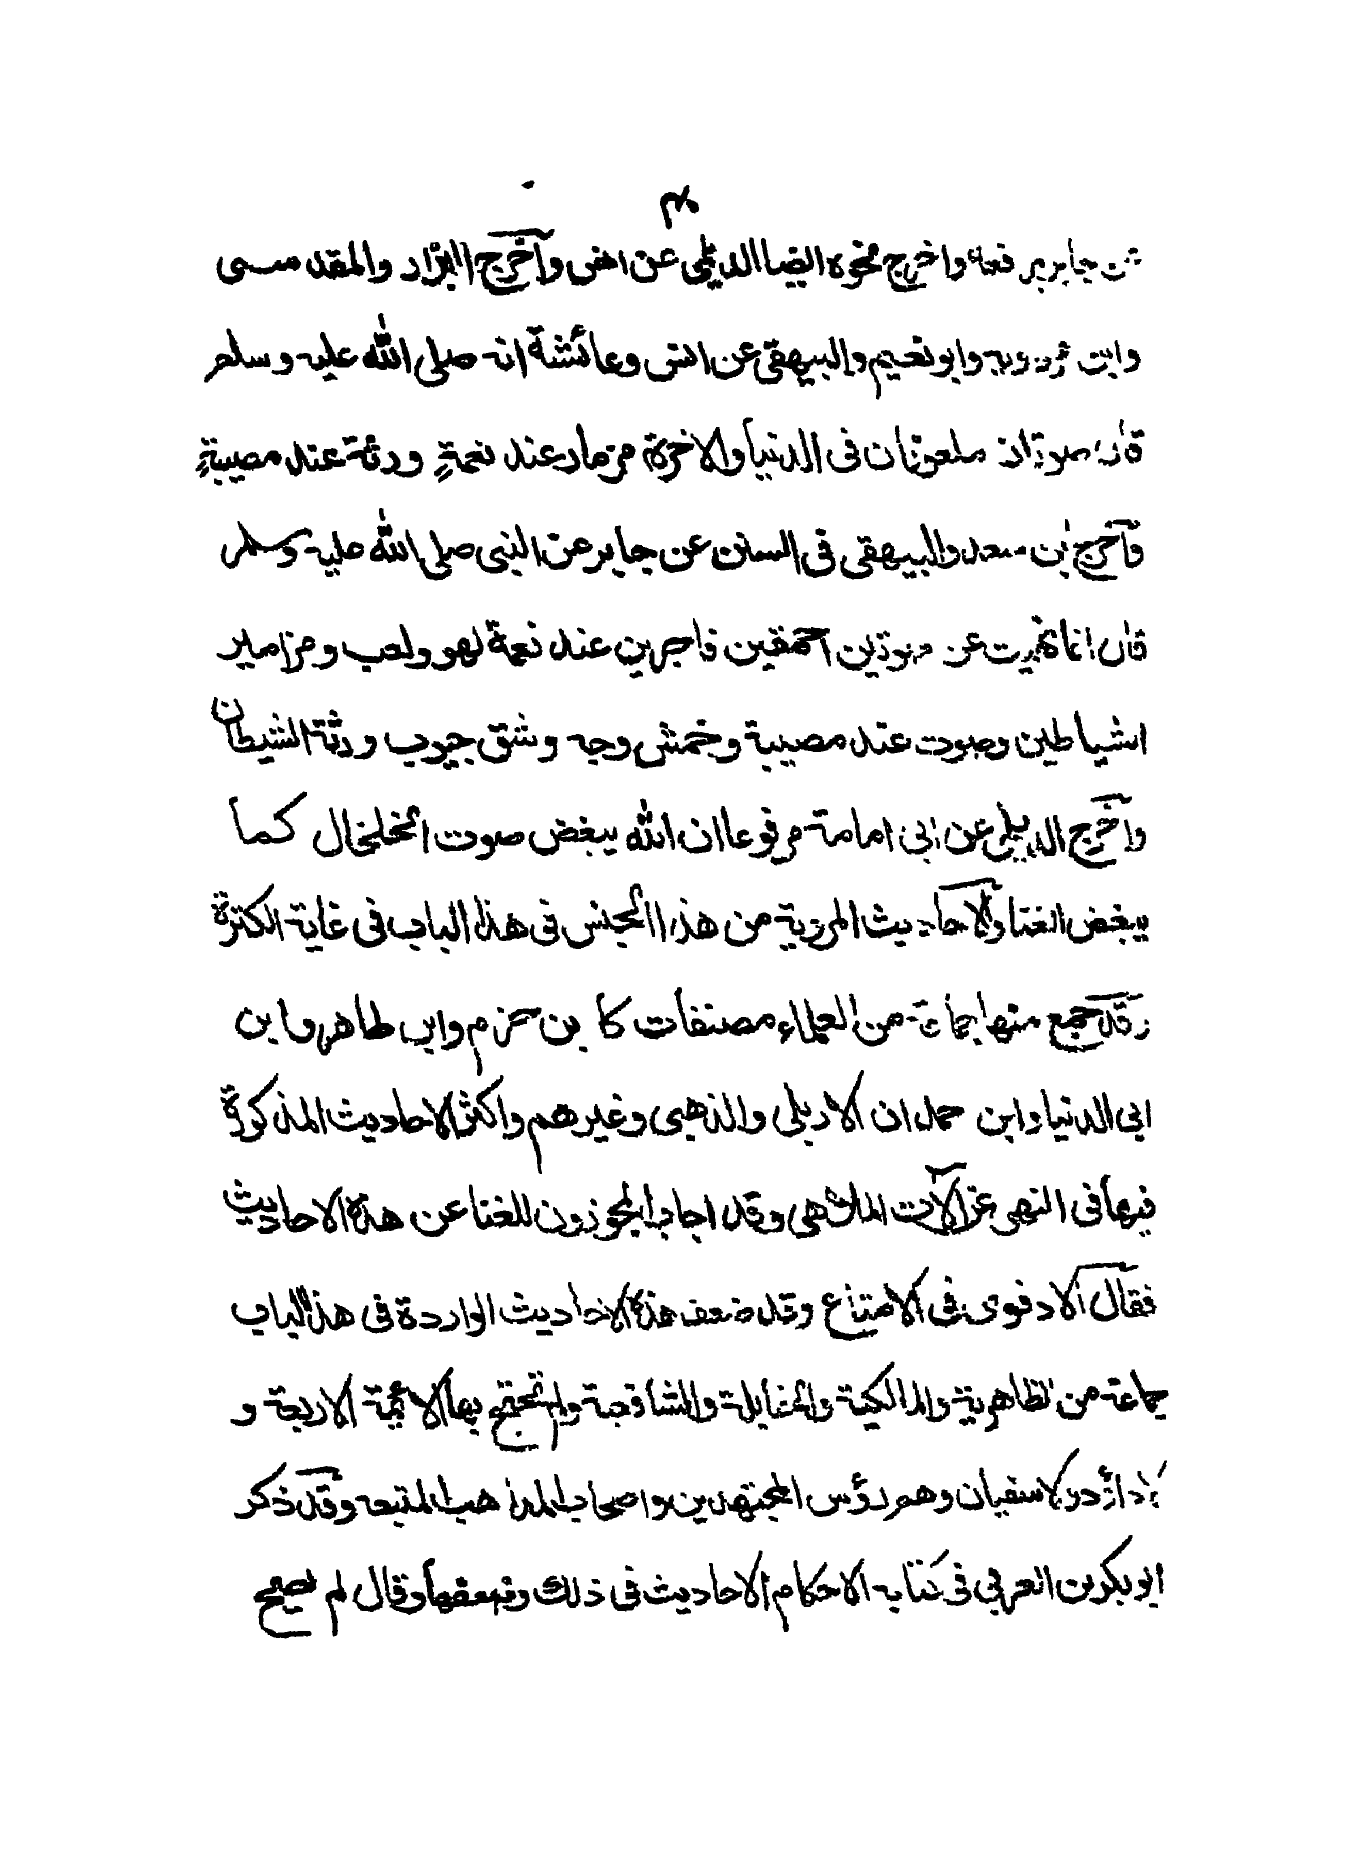 ٣
عن جابر يرفعه واخرج نحوه ايضا الديلمى عن انس واخرج البزار والمقدسى
وابن مردويه وابو نعيم والبيهقى عن انس وعائشة انه صلى الله عليه وسلم
قال صوتان ملعونان فى الدنيا والاخرة مزمار عند نعمةٍ ورنة عند مصيبةٍ
فاخرج ابن سعد والبيهقى فى السنن عن جابر عن النبى صلى الله عليه وسلم
قال انما نهيت عن صوتين احمقين فاجرين عند نعمة لهو ولعب ومزامير
اشياطين وصوت عند مصيبة وخمش وجه وشق جيوب ورنة الشيطان
واخرج الديلمى عن ابى امامة مرفوعا ان الله يبغض صوت الخلخال كما
يبغض الغنا والاحاديث المروية من هذا الجنس فى هذا الباب فى غاية الكثرة
وقد جمع منها جماعة من العلماء مصنفات كابن حزم وابن طاهر وابن
ابى الدنيا وابن حمدان الاربلى والذهبى وغيرهم واكثر الاحاديث المذكورة
فيها فى النهى عن الآت الملاهى وقد اجاب المجوزون للغنا عن هذه الاحاديث
فقال الادفوى فى الامتاع وقد ضعف هذه الاحاديث الواردة فى هذا الباب
جماعة من الظاهرية والمالكية والحنابلة والشافعية ولم تحتج بها الائمة الاربعة و
لا داؤد ولا سفيان وهم رؤس المجتهدين واصحاب المذاهب المتبعه وقد ذكر
ابو بكر بن العربى فى كتابه الاحكام الاحاديث فى ذلك وضعفها وقال لم يصح